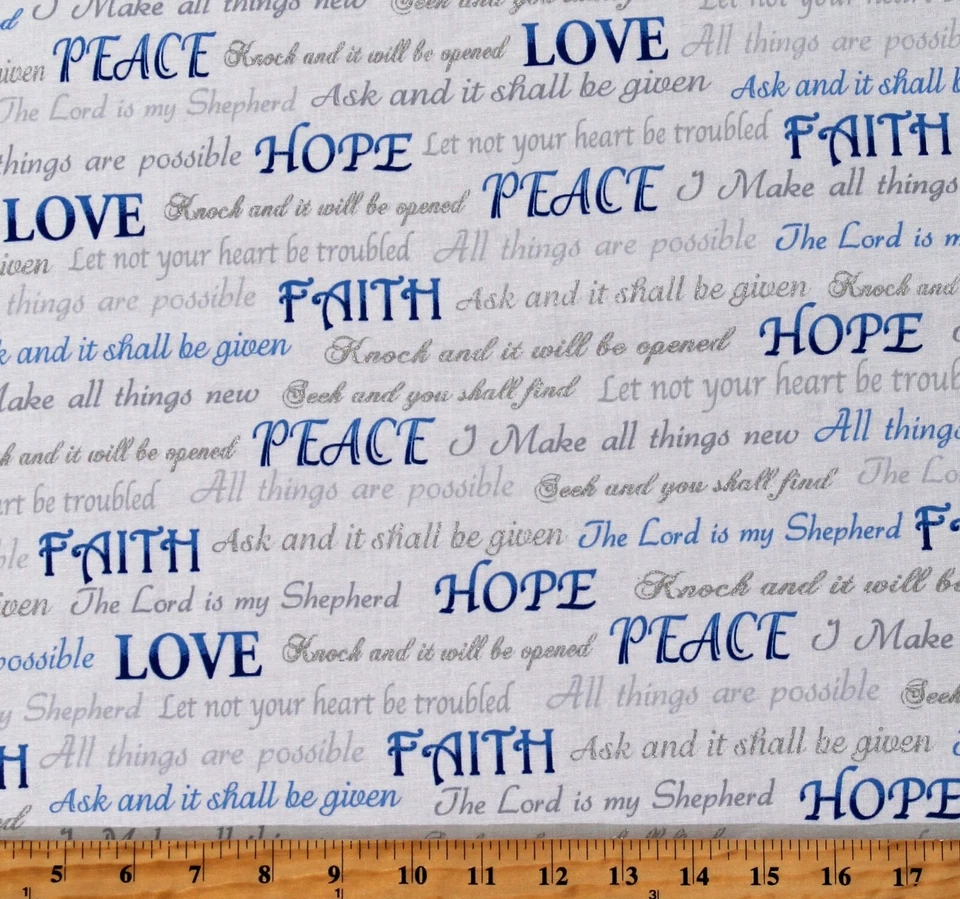 d I Make all things new Seek and you shall find Let not your heart be
given PEACE Knock and it will be opened LOVE All things are possib
The Lord is my Shepherd Ask and it shall be given Ask and it shall b
things are possible HOPE Let not your heart be troubled FAITH
LOVE Knock and it will be opened PEACE I Make all things
iven Let not your heart be troubled All things are possible The Lord is m
things are possible FAITH Ask and it shall be given Knock and
k and it shall be given Knock and it will be opened HOPE
Make all things new Seek and you shall find Let not your heart be troub
k and it will be opened PEACE I Make all things new All things
rt be troubled All things are possible Seek and you shall find The Lo
ble FAITH Ask and it shall be given The Lord is my Shepherd FA
iven The Lord is my Shepherd HOPE Knock and it will be
possible LOVE Knock and it will be opened PEACE I Make
y Shepherd Let not your heart be troubled All things are possible Seek
H All things are possible FAITH Ask and it shall be given
d Ask and it shall be given The Lord is my Shepherd HOPE
I Make all things
5 6 7 8 9 10 11 12 13 14 15 16 17
1 1 3